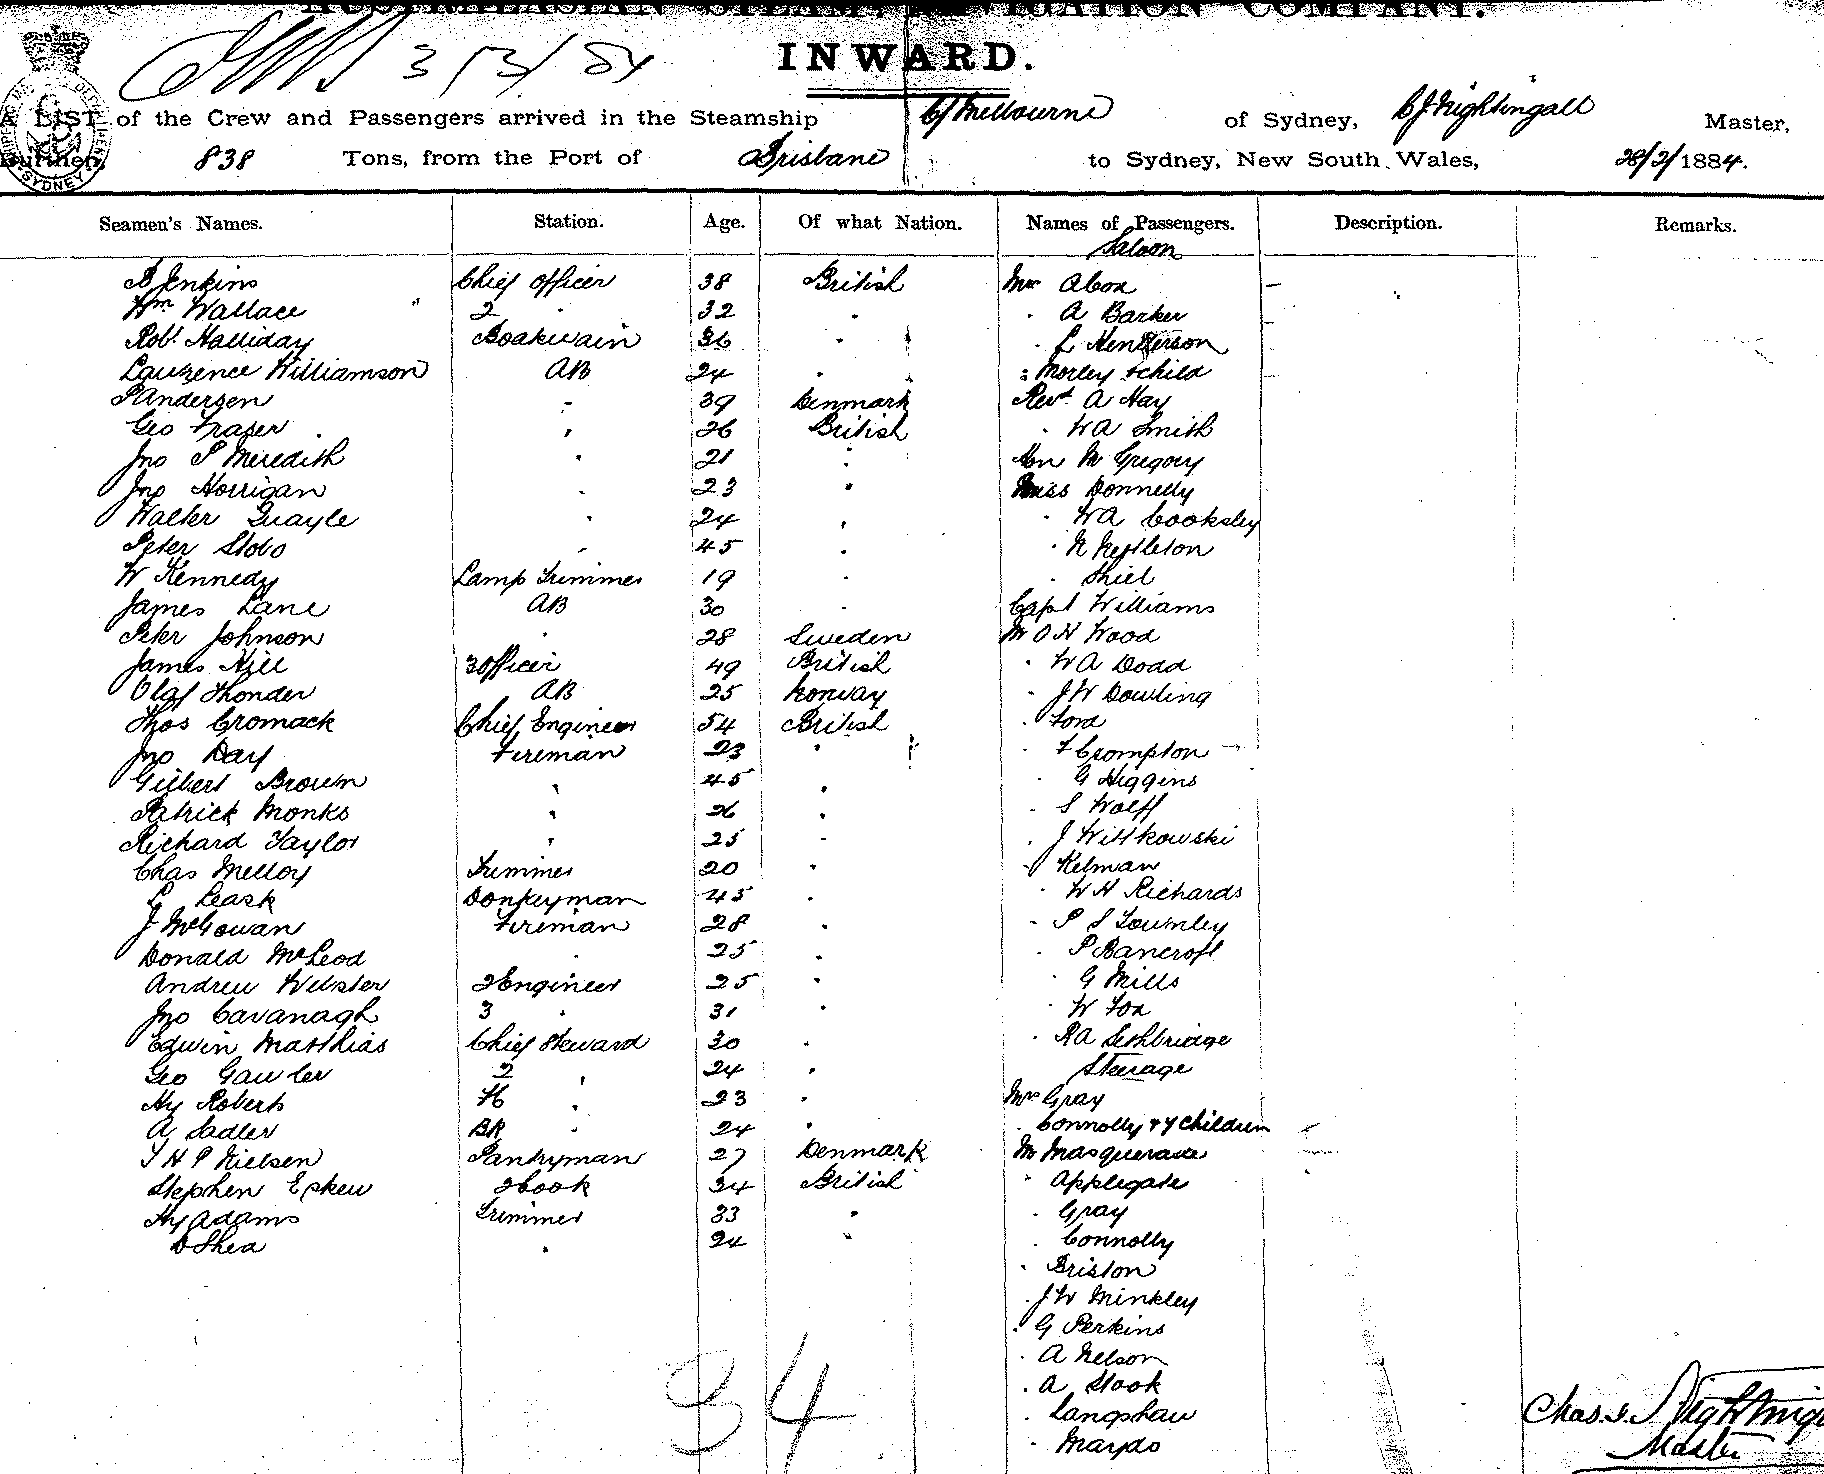 AUSTRALASIAN STEAM NAVIGATION COMPANY.
INWARD.
3/3/84
A LIST of the Crew and Passengers arrived in the Steamship C/ Melbourne of Sydney, C J Nightingall Master,
Burthen, 838 Tons, from the Port of Brisbane to Sydney, New South Wales, 28/2/1884.
Seamen's Names. Station. Age. Of what Nation. Names of Passengers. Description. Remarks.
Saloon
B Jenkins Chief Officer 38 British Mrs Abox
Wm Wallace 2 " 32 " " A Barker
Robt Halliday Boatswain 36 " " L Henderson
Laurence Williamson AB 24 " " Morley & child
P Andersen " 39 Denmark Revd A Hay
Geo Fraser " 26 British " WA Smith
Jno P Meredith " 21 " Hon M Gregory
Jno Horrigan " 23 " Miss Donnelly
Walter Quayle " 24 " " WA Cooksley
Peter Stobo " 45 " " N Nettleton
W Kennedy Lamp Trimmer 19 " " Shiel
James Lane AB 30 " Capt Williams
Peter Johnson " 28 Sweden Mr O H Wood
James Hill 3 Officer 49 British " WA Dodd
Olaf Thonder AB 25 Norway " JW Dowling
Thos Cromack Chief Engineer 54 British " Ford
Jno Day Fireman 23 " " F Crompton
Gilbert Brown " 45 " " G Higgins
Patrick Monks " 26 " " S Wolff
Richard Taylor " 25 " " J Wittkowski
Chas Melloy Trimmer 20 " " Kelman
L Leask Donkeyman 45 " " W H Richards
J McGowan Fireman 28 " " P S Townley
Donald McLeod " 25 " " P Bancroft
Andrew Webster 2 Engineer 25 " " G Mills
Jno Cavanagh 3 " 31 " " W Fox
Edwin Matthias Chief Steward 30 " " RA Lethbridge
Geo Gawler 2 " 24 " Steerage
Hy Roberts F " 23 " Mrs Gray
A Sadler BR " 24 " " Connolly & 4 Children
J H P Nielsen Pantryman 27 Denmark Mr Masquerade
Stephen Eskew 2 Cook 34 British " Applegate
Hy Adams Trimmer 33 " " Gray
D Shea " 24 " " Connolly
" Briston
" JW Minkley
" G Perkins
" A Nelson
" A Stook
" Langshaw
" Maydo
34
Chas. J. Nightinga
Master